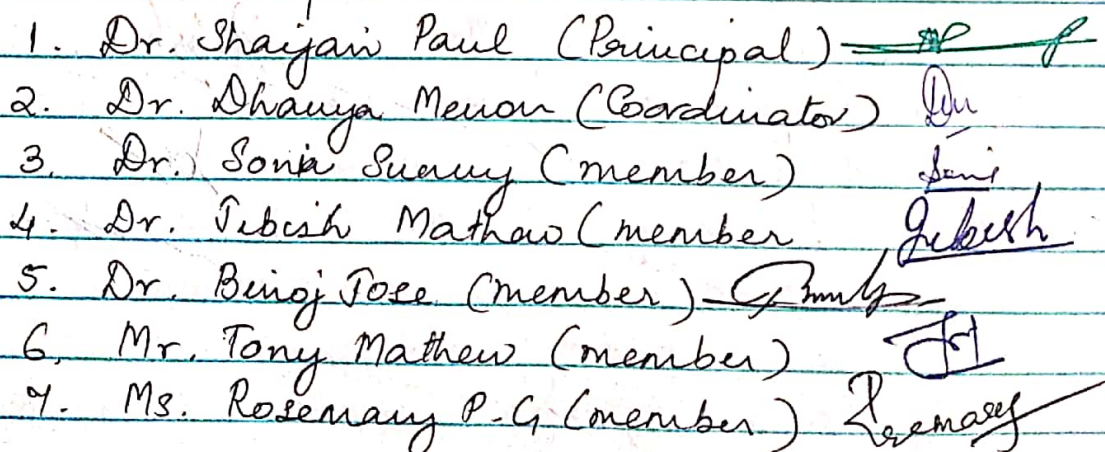 1. Dr. Shaijan Paul (Principal)
2. Dr. Dhanya Menon (Coordinator)
3. Dr. Sonia Sunny (member)
4. Dr. Jebish Mathao (member Jebish
5. Dr. Binoj Jose (member)
6. Mr. Tony Mathew (member)
7. Ms. Rosemary P.G (member) Rosemary